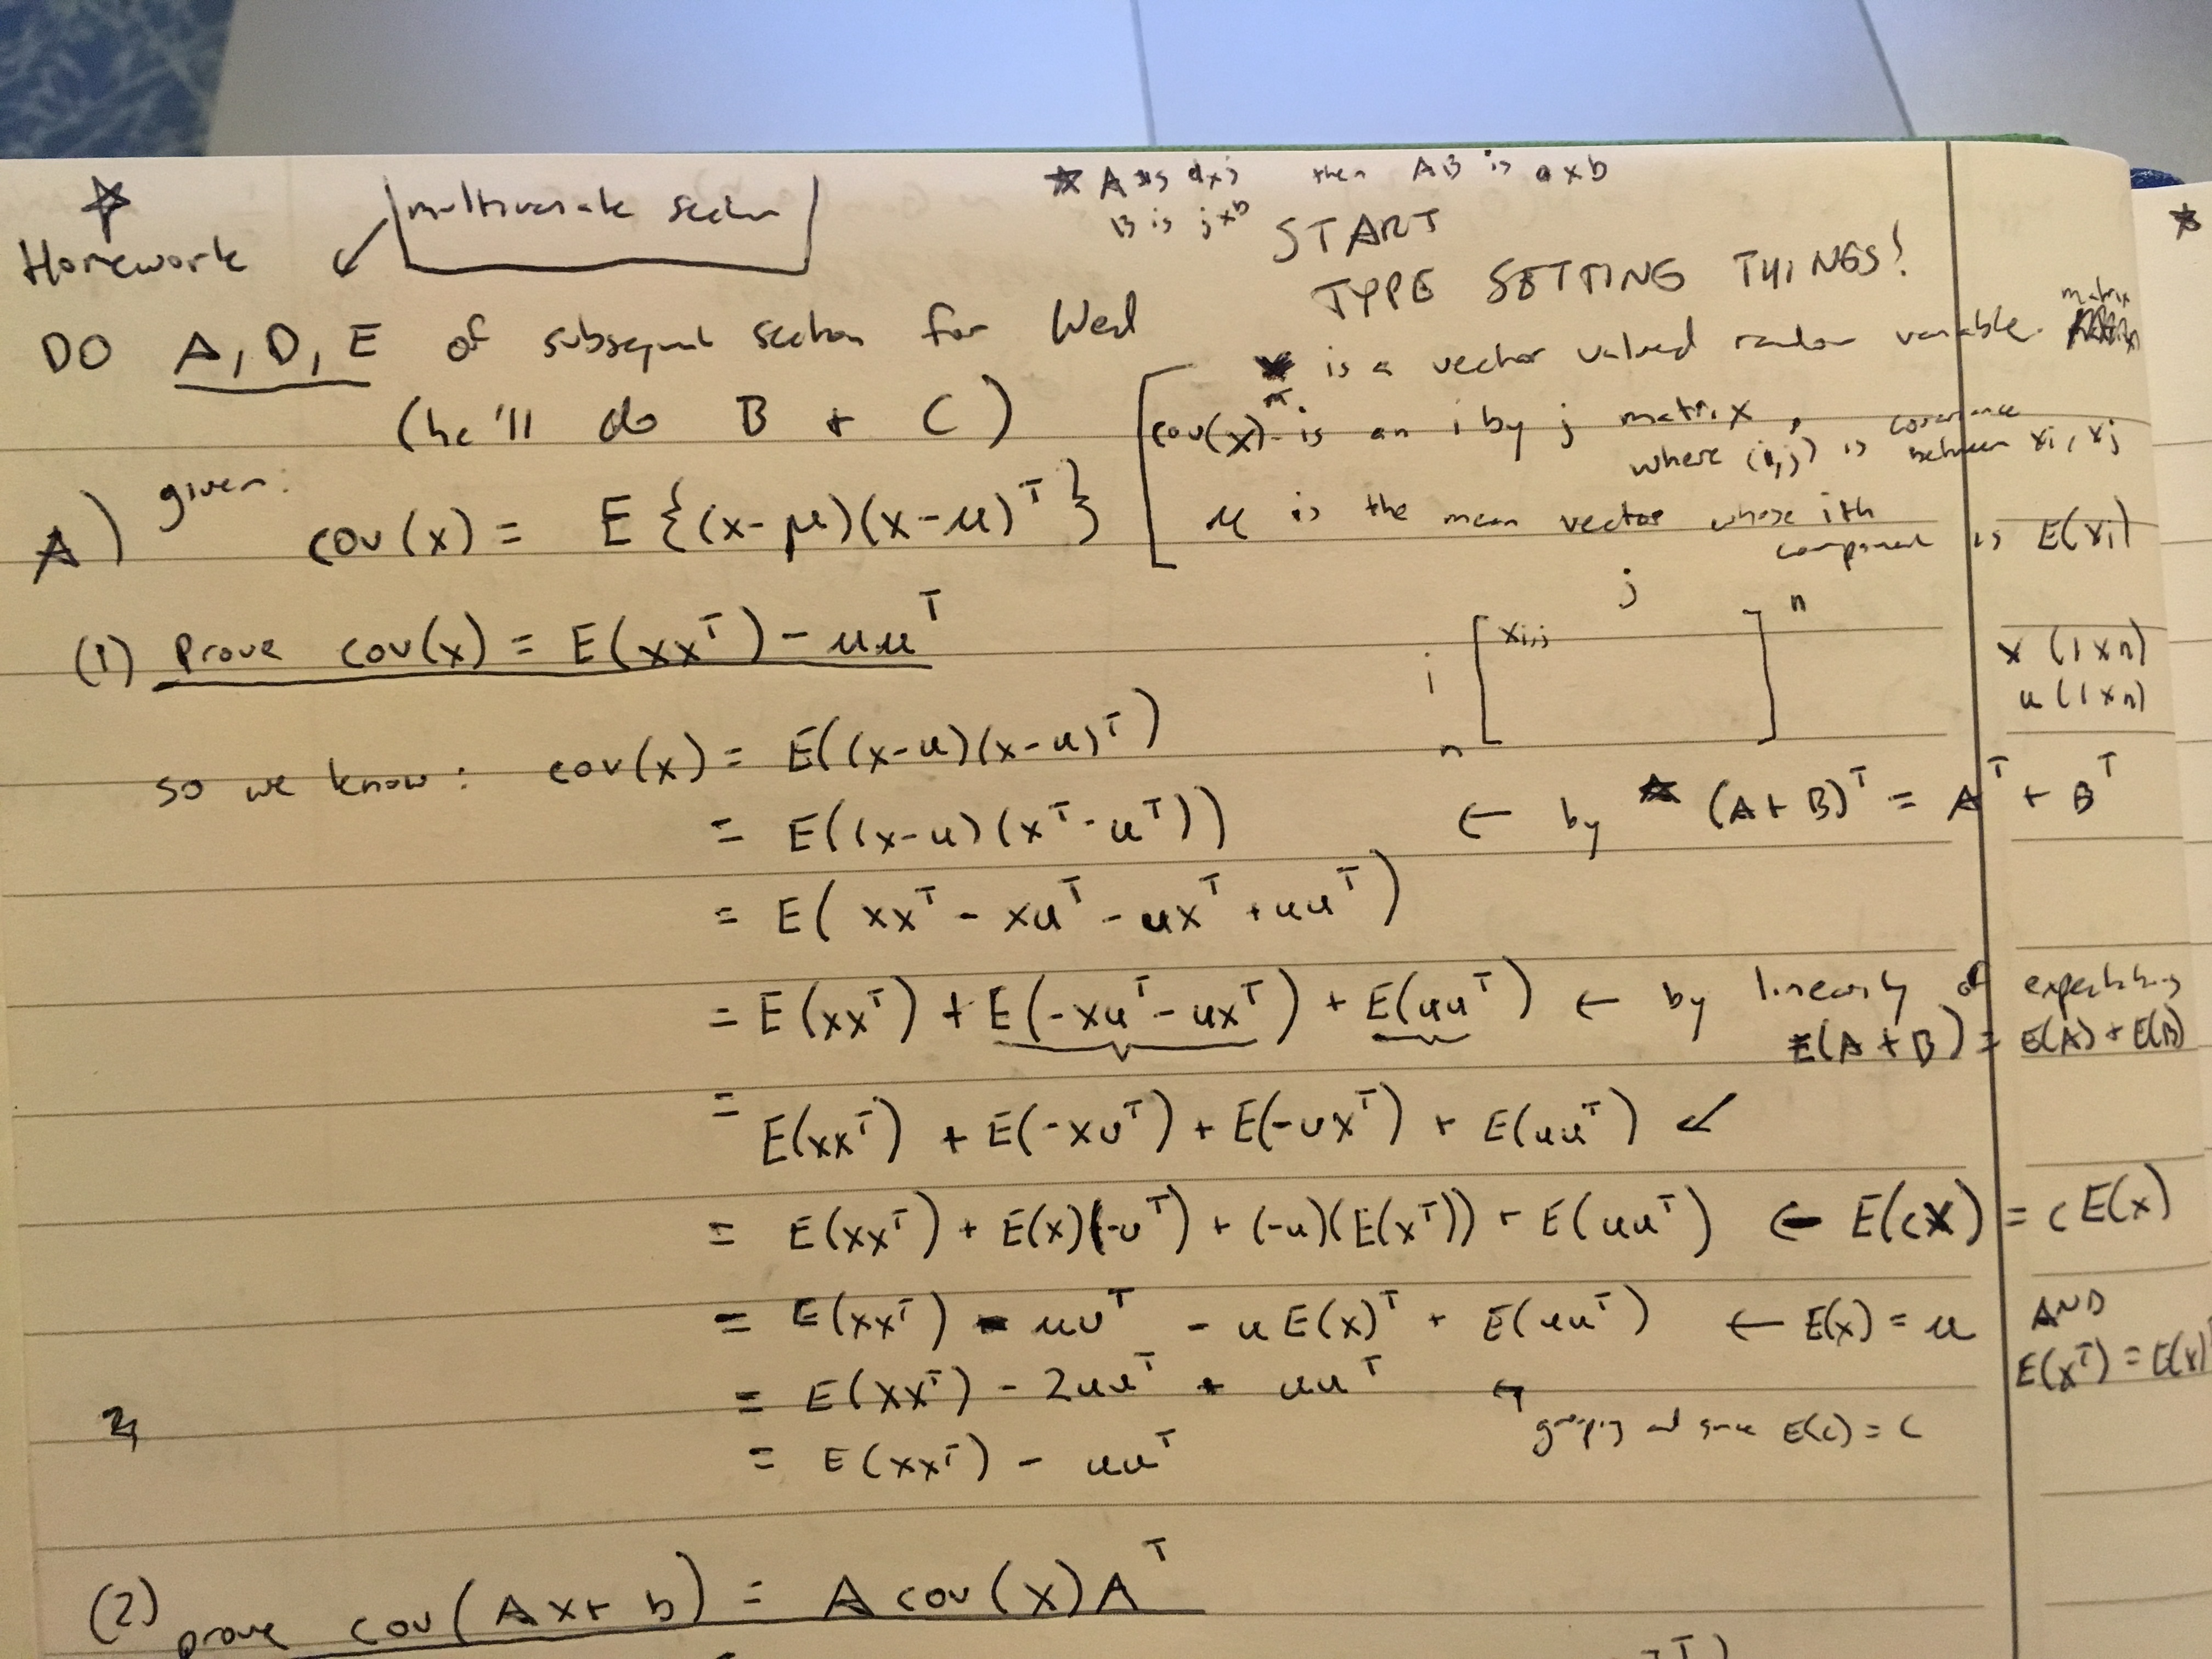 ★
Homework
multivariate section
★ A is a x j then AB is a x b
B is j x b
START
TYPE SETTING THINGS!
DO A, D, E of subsequent section for Wed
(he'll do B + C)
x is a vector valued random variable.
matrix
cov(x) is an i by j matrix,
where (i,j) is covariance between xi, xj
μ is the mean vector whose ith
component is E(xi)
A) given:
cov(x) = E{(x-μ)(x-μ)ᵀ}
(1) Prove cov(x) = E(xxᵀ) - uuᵀ
j
i [ xi,j ] n
n
x (1xn)
u (1xn)
so we know: cov(x) = E((x-u)(x-u)ᵀ)
= E((x-u)(xᵀ-uᵀ)) ← by ★ (A+B)ᵀ = Aᵀ + Bᵀ
= E(xxᵀ - xuᵀ - uxᵀ + uuᵀ)
= E(xxᵀ) + E(-xuᵀ - uxᵀ) + E(uuᵀ) ← by linearity of
E(A+B) = E(A) + E(B)
= E(xxᵀ) + E(-xuᵀ) + E(-uxᵀ) + E(uuᵀ) ↙
= E(xxᵀ) + E(x)(-uᵀ) + (-u)(E(xᵀ)) + E(uuᵀ) ← E(cX) = cE(x)
= E(xxᵀ) - uuᵀ - uE(x)ᵀ + E(uuᵀ) ← E(x) = u AND
E(xᵀ) = E(x)
= E(xxᵀ) - 2uuᵀ + uuᵀ ←
grouping and since E(c) = c
= E(xxᵀ) - uuᵀ
(2) prove cov(Ax+b) = A cov(x)Aᵀ